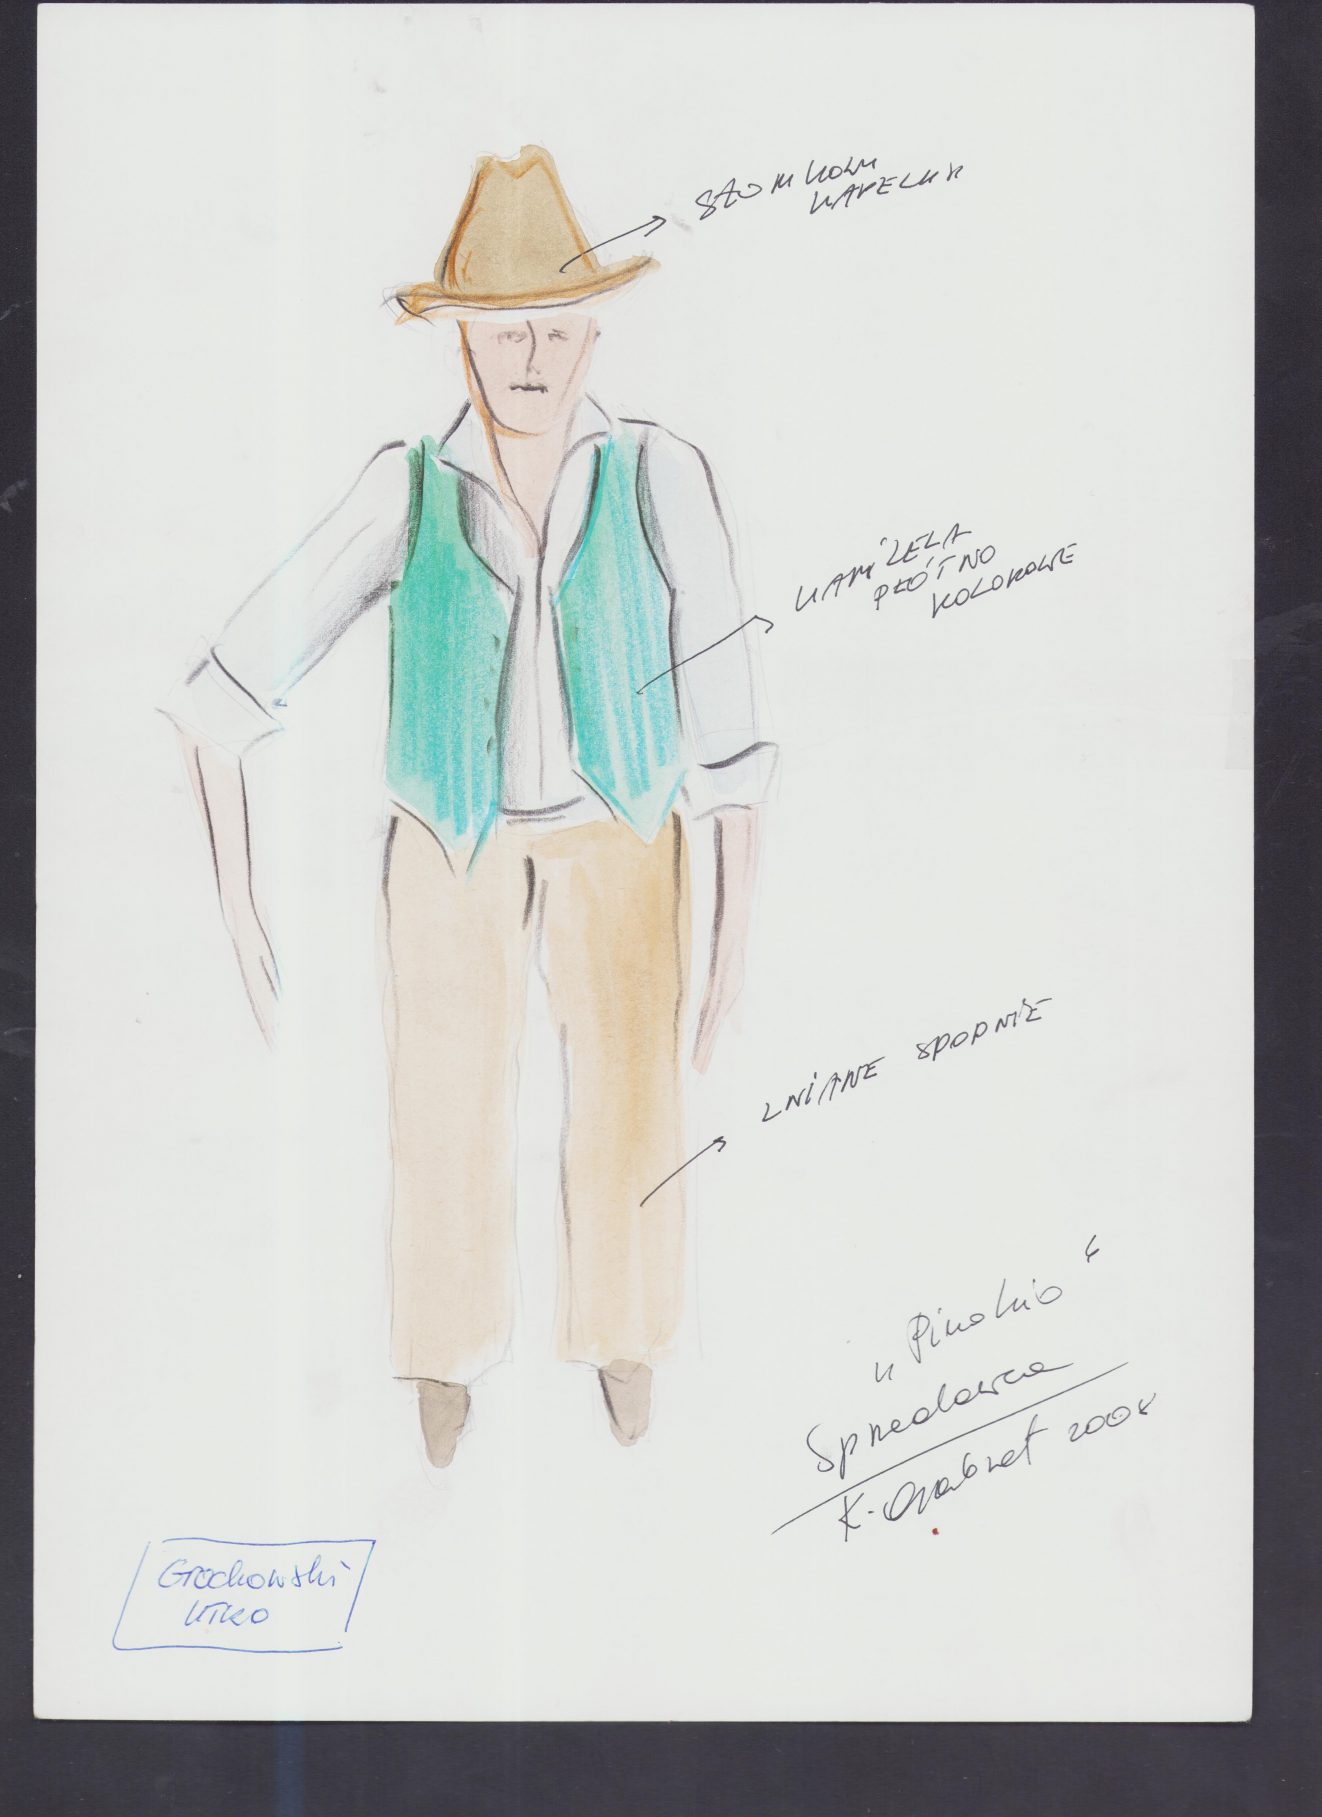 SŁOMKOWY
KAPELUSZ
KAMIZELA
PŁÓTNO
KOLOROWE
LNIANE SPODNIE
„Pinokio“
Sprzedawca
2008
Grochowski